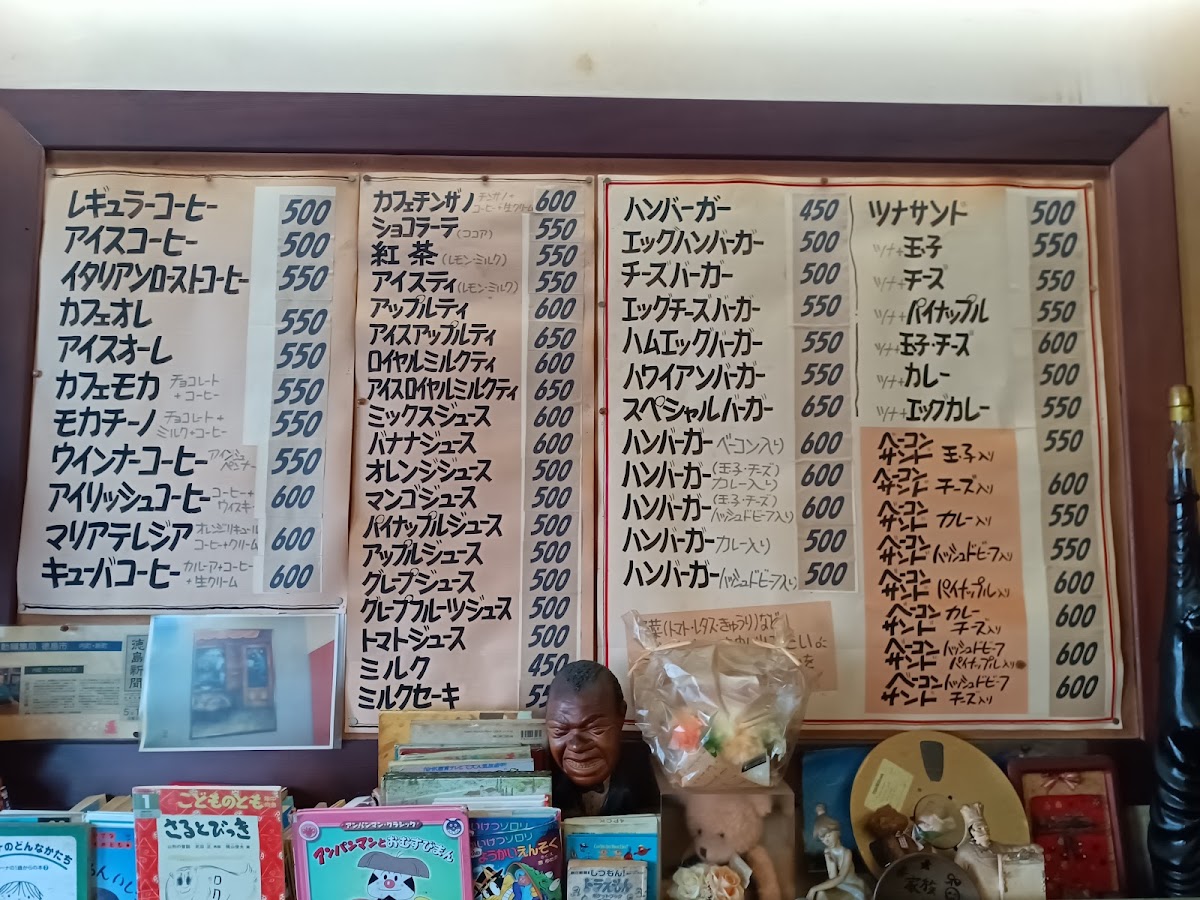 レギュラーコーヒー 500
アイスコーヒー 500
イタリアンローストコーヒー 550
カフェオレ 550
アイスオーレ 550
カフェモカ チョコレート+コーヒー 550
モカチーノ チョコレート+ミルク+コーヒー 550
ウインナーコーヒー 550
アイリッシュコーヒー コーヒー+ウイスキー 600
マリアテレジア オレンジリキュール コーヒー+クリーム 600
キューバコーヒー カルーア+コーヒー+生クリーム 600
カフェチンザノ チンザノ+コーヒー+生クリーム 600
ショコラーテ(ココア) 550
紅茶(レモン・ミルク) 550
アイスティ(レモン・ミルク) 550
アップルティ 600
アイスアップルティ 650
ロイヤルミルクティ 600
アイスロイヤルミルクティ 650
ミックスジュース 600
バナナジュース 600
オレンジジュース 500
マンゴジュース 500
パイナップルジュース 500
アップルジュース 500
グレープジュース 500
グレープフルーツジュース 500
トマトジュース 500
ミルク 450
ミルクセーキ
ハンバーガー 450
エッグハンバーガー 500
チーズバーガー 500
エッグチーズバーガー 550
ハムエッグバーガー 550
ハワイアンバーガー 550
スペシャルバーガー 650
ハンバーガー ベーコン入り 600
ハンバーガー(玉子・チーズ)カレー入り 600
ハンバーガー(玉子・チーズ)ハッシュドビーフ入り 600
ハンバーガー カレー入り 500
ハンバーガー ハッシュドビーフ入り 500
(トマト・レタス・きゅうり)など
ツナサンド 500
ツナ+玉子 550
ツナ+チーズ 550
ツナ+パイナップル 550
ツナ+玉子・チーズ 600
ツナ+カレー 500
ツナ+エッグカレー 550
ベーコンサンド 玉子入り 550
ベーコンサンド チーズ入り 600
ベーコンサンド カレー入り 550
ベーコンサンド ハッシュドビーフ入り 550
ベーコンサンド パイナップル入り 600
ベーコンサンド カレーチーズ入り 600
ベーコンサンド ハッシュドビーフパイナップル入り 600
ベーコンサンド ハッシュドビーフチーズ入り 600
徳島新聞
のどんなかたち
1
こどものとも
さるとびっき
アンパンマン・クラシック
アンパンマンとおむすびまん
いけつゾロリ
いけつゾロリ
えんそく
しつもん!
ドラえもん
家族